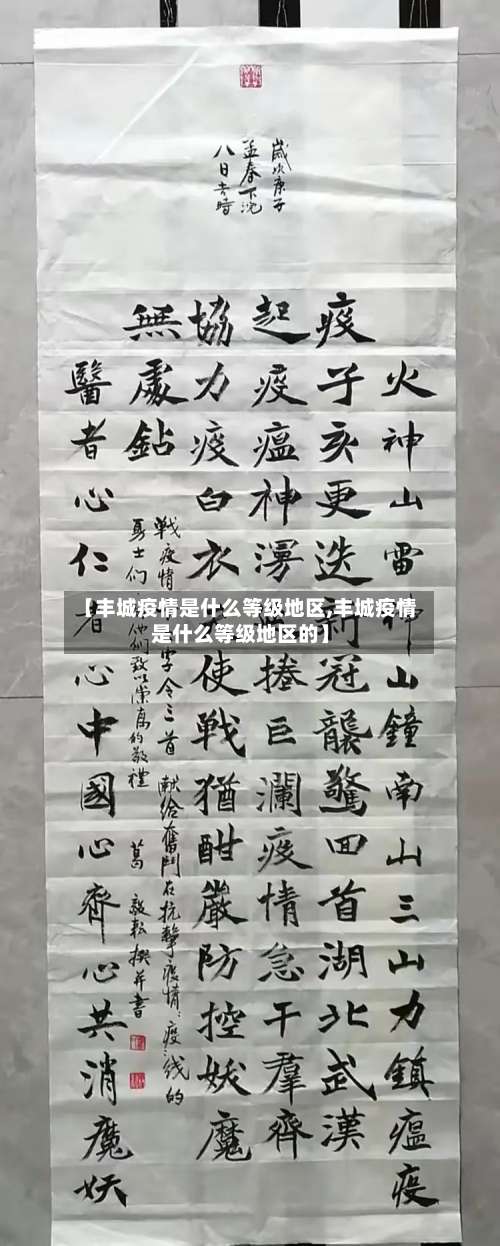 火神山雷神山鐘南山三山力鎮瘟疫
疫子亥更迭新冠襲驚回首湖北武漢
起疫瘟神漫捲巨瀾疫情急千羣齊
協力疫白衣天使戰猶酣嚴防控妖魔
無處鉆
醫者心仁者心中國心齊心共消魔妖
戰疫情
字令三首
獻給奮鬥在抗擊疫情疫线的
勇士们
他们致以崇高的敬禮
葛
毅耘撰并書
歲次庚子
孟春下浣
八日吉時
【丰城疫情是什么等级地区,丰城疫情
是什么等级地区的】